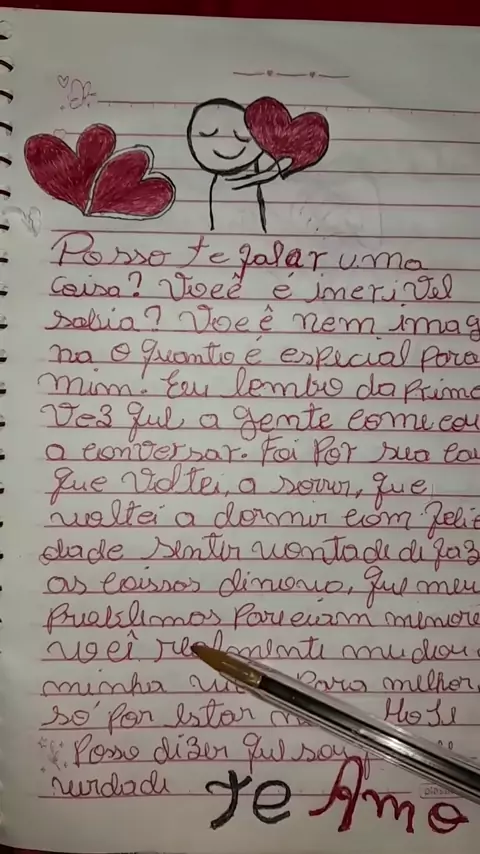 Posso te falar uma
coisa? Você é incrivel
sabia? Você nem imag
na o quanto é especial para
mim. Eu lembro da prime
vez que, a gente começou
a conversar. Foi por sua cau
que voltei, a sorrir, que
voltei a dormir com felic
dade sentir vontade di faz
as coissas dinovo, que meu
problemas pareciam menore
você realmente mudou
minha para melhor,
só por estar Hoje
Posso dizer que sou
verdade
te Amo